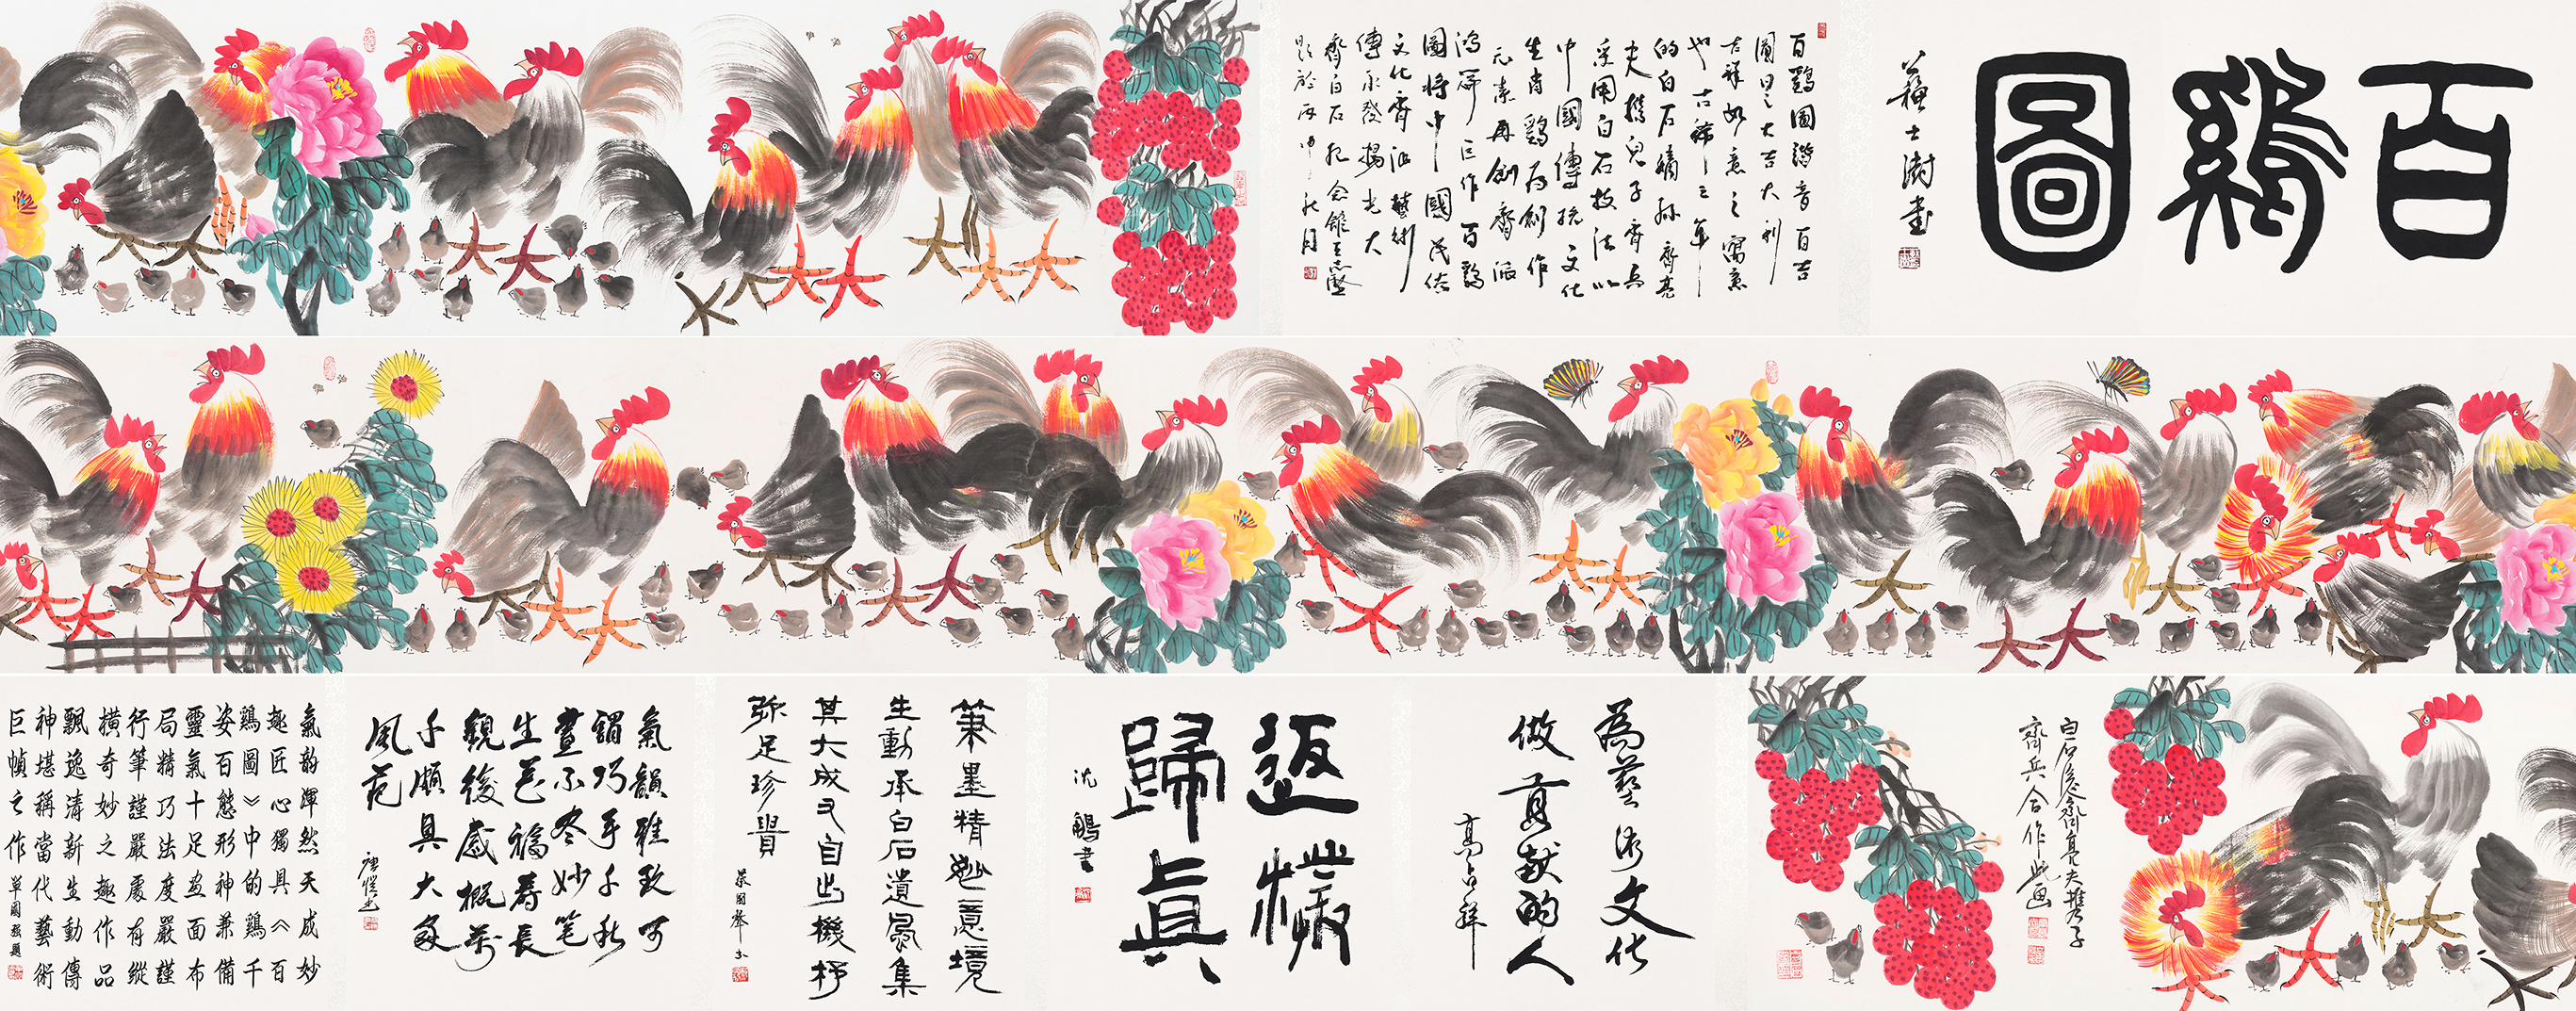 百鷄圖
蘇士澍書
百鷄圖諧音百吉
圖日之大吉大利
吉祥如意之寓意
也古稀之年
的白石嫡孫齊亮
夫攜兒子齊兵
采用白石技法以
中國傳統文化
生肖鷄為創作
元素再創齊派
鴻篇巨作百鷄
圖將中國民俗
文化齊派藝術
傳承發揚光大
齊白石紀念館王志堅
題於丙申秋月
白石後齊亮夫攜子
齊兵合作此画
為藝術文化
做貢獻的人
高占祥
返樸
歸眞
沈鵬書
筆墨精妙意境
生動承白石遺風集
其大成又自出機杼
弥足珍貴
國聲书
氣韻雅致可
謂巧手千秋
畫不尽妙笔
生花福壽長
觀後感概万
千頗具大家
風范
唐书
氣韵渾然天成妙
趣匠心獨具《百
鷄圖》中的鷄千
姿百態形神兼備
靈氣十足画面布
局精巧法度嚴謹
行筆謹嚴處有縱
橫奇妙之趣作品
飄逸清新生動傳
神堪稱當代藝術
巨幀之作 單國强題